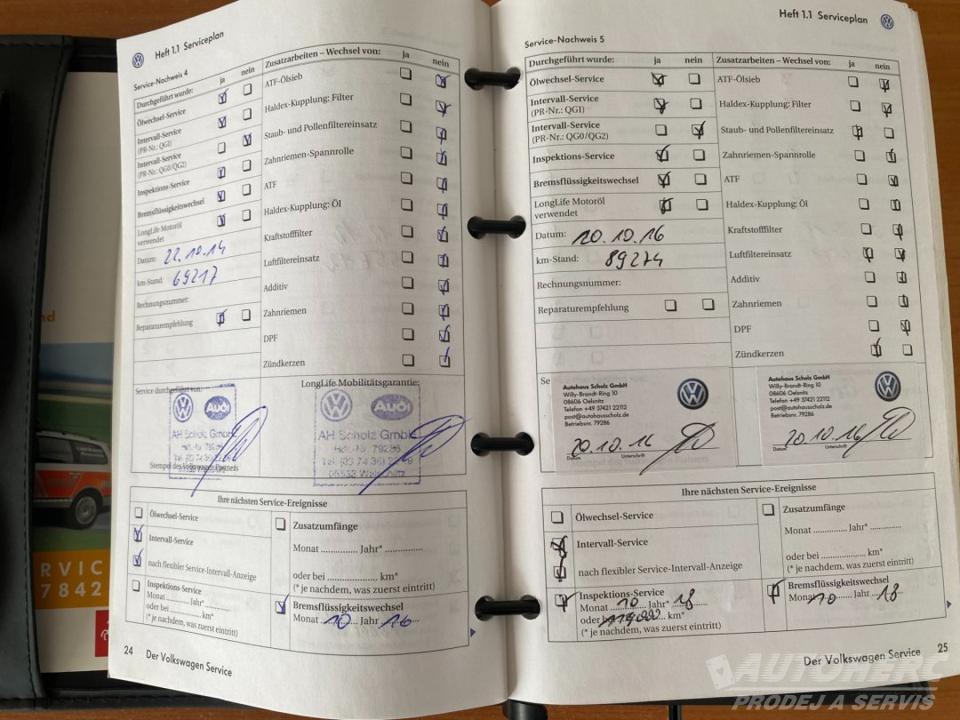 Heft 1.1 Serviceplan
Service-Nachweis 4
Durchgeführt wurde: ja nein
Ölwechsel-Service
Intervall-Service
(PR-Nr.: QG1)
Intervall-Service
(PR-Nr.: QG0/QG2)
Inspektions-Service
Bremsflüssigkeitswechsel
LongLife Motoröl
verwendet
Datum: 22.10.14
km-Stand: 69217
Rechnungsnummer:
Reparaturempfehlung
Zusatzarbeiten – Wechsel von: ja nein
ATF-Ölsieb
Haldex-Kupplung: Filter
Staub- und Pollenfiltereinsatz
Zahnriemen-Spannrolle
ATF
Haldex-Kupplung: Öl
Kraftstofffilter
Luftfiltereinsatz
Additiv
Zahnriemen
DPF
Zündkerzen
Service durchgeführt von:
LongLife Mobilitätsgarantie:
Audi
AH Scholz GmbH
Audi
AH Scholz GmbH
Stempel des Volkswagen Partners
Ihre nächsten Service-Ereignisse
Ölwechsel-Service
Intervall-Service
nach flexibler Service-Intervall-Anzeige
Inspektions-Service
Monat ........ Jahr* ........
oder bei ........ km*
(* je nachdem, was zuerst eintritt)
Zusatzumfänge
Monat ........ Jahr* ........
oder bei ........ km*
(* je nachdem, was zuerst eintritt)
Bremsflüssigkeitswechsel
Monat 10 Jahr 16
24 Der Volkswagen Service
Heft 1.1 Serviceplan
Service-Nachweis 5
Durchgeführt wurde: ja nein
Ölwechsel-Service
Intervall-Service
(PR-Nr.: QG1)
Intervall-Service
(PR-Nr.: QG0/QG2)
Inspektions-Service
Bremsflüssigkeitswechsel
LongLife Motoröl
verwendet
Datum: 20.10.16
km-Stand: 89274
Rechnungsnummer:
Reparaturempfehlung
Zusatzarbeiten – Wechsel von: ja nein
ATF-Ölsieb
Haldex-Kupplung: Filter
Staub- und Pollenfiltereinsatz
Zahnriemen-Spannrolle
ATF
Haldex-Kupplung: Öl
Kraftstofffilter
Luftfiltereinsatz
Additiv
Zahnriemen
DPF
Zündkerzen
Se
Autohaus Scholz GmbH
Willy-Brandt-Ring 10
08606 Oelsnitz
Telefon +49 37421 22112
post@autohausscholz.de
Betriebsnr. 79286
20.10.16
Datum Unterschrift
Autohaus Scholz GmbH
Willy-Brandt-Ring 10
08606 Oelsnitz
Telefon +49 37421 22112
post@autohausscholz.de
Betriebsnr. 79286
20.10.16
Datum Unterschrift
Ihre nächsten Service-Ereignisse
Ölwechsel-Service
Intervall-Service
nach flexibler Service-Intervall-Anzeige
Inspektions-Service
Monat 10 Jahr* 18
oder bei 119.000 km*
(* je nachdem, was zuerst eintritt)
Zusatzumfänge
Monat ........ Jahr* ........
oder bei ........ km*
(* je nachdem, was zuerst eintritt)
Bremsflüssigkeitswechsel
Monat 10 Jahr 18
Der Volkswagen Service 25
RVIC
7842
AUTOHERC
PRODEJ A SERVIS